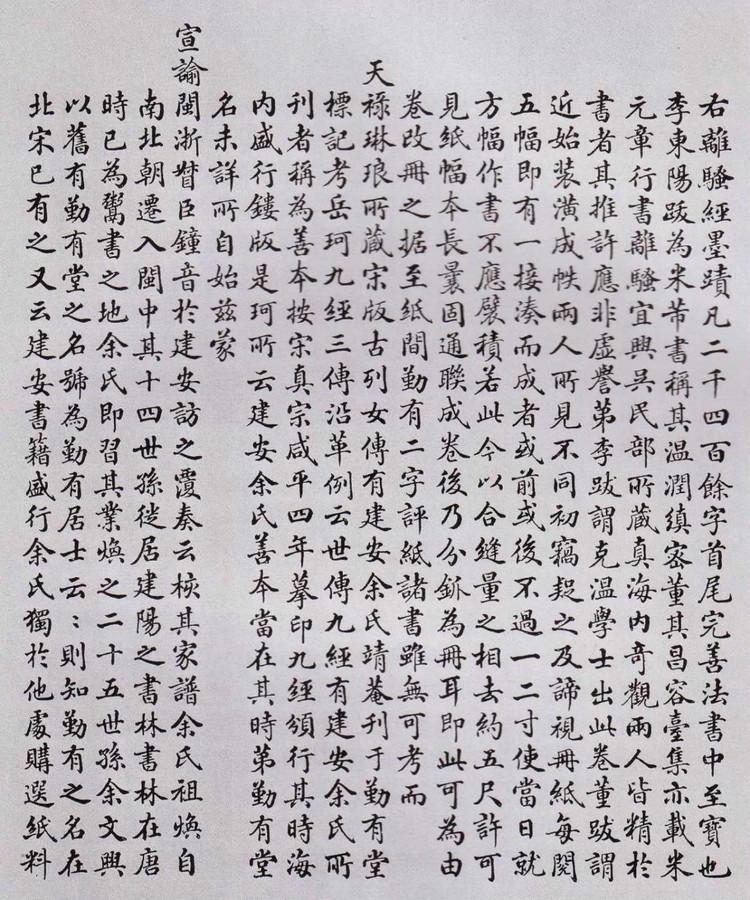 右離騷經墨蹟凡二千四百餘字首尾完善法書中至寶也
李東陽跋為米芾書稱其温潤縝密董其昌容臺集亦載米
元章行書離騷宜興吳民部所藏真海内奇觀兩人皆精於
書者其推許應非虛譽第李跋謂克温學士出此卷董跋謂
近始装潢成帙兩人所見不同初竊疑之及諦視冊紙每閱
五幅即有一接湊而成者或前或後不過一二寸使當日就
方幅作書不應襞積若此今以合縫量之相去約五尺許可
見紙幅本長曩固通聯成卷後乃分鈲為冊耳即此可為由
卷改冊之据至紙間勤有二字評紙諸書雖無可考而
天禄琳琅所藏宋版古列女傳有建安余氏靖菴刊于勤有堂
標記考岳珂九經三傳沿革例云世傳九經有建安余氏所
刊者稱為善本按宋真宗咸平四年摹印九經頒行其時海
内盛行鏤版是珂所云建安余氏善本當在其時第勤有堂
名未詳所自始兹蒙
宣諭閩淅督臣鐘音於建安訪之覆奏云核其家譜余氏祖煥自
南北朝遷入閩中其十四世孫徙居建陽之書林書林在唐
時已為鬻書之地余氏即習其業煥之二十五世孫余文興
以舊有勤有堂之名號為勤有居士云：則知勤有之名在
北宋已有之又云建安書籍盛行余氏獨於他處購選紙料